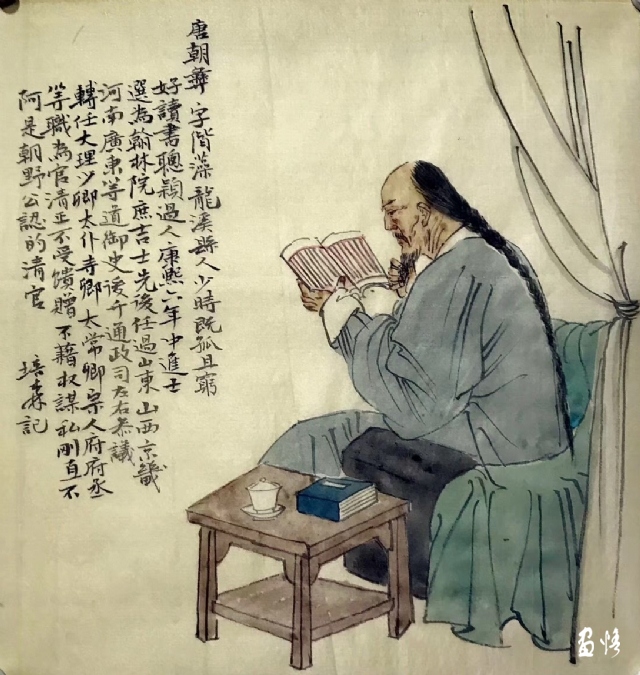 唐朝彝 字偕藻 龍溪縣人 少時既孤且窮
好讀書聰穎過人 康熙六年中進士
選為翰林院庶吉士先後任過山東山西京畿
河南廣東等道御史後升通政司左右參議
轉任大理少卿太仆寺卿太常卿宗人府府丞
等職為官清正不受饋贈不藉权謀私剛直不
阿是朝野公認的清官
培森記
畫情